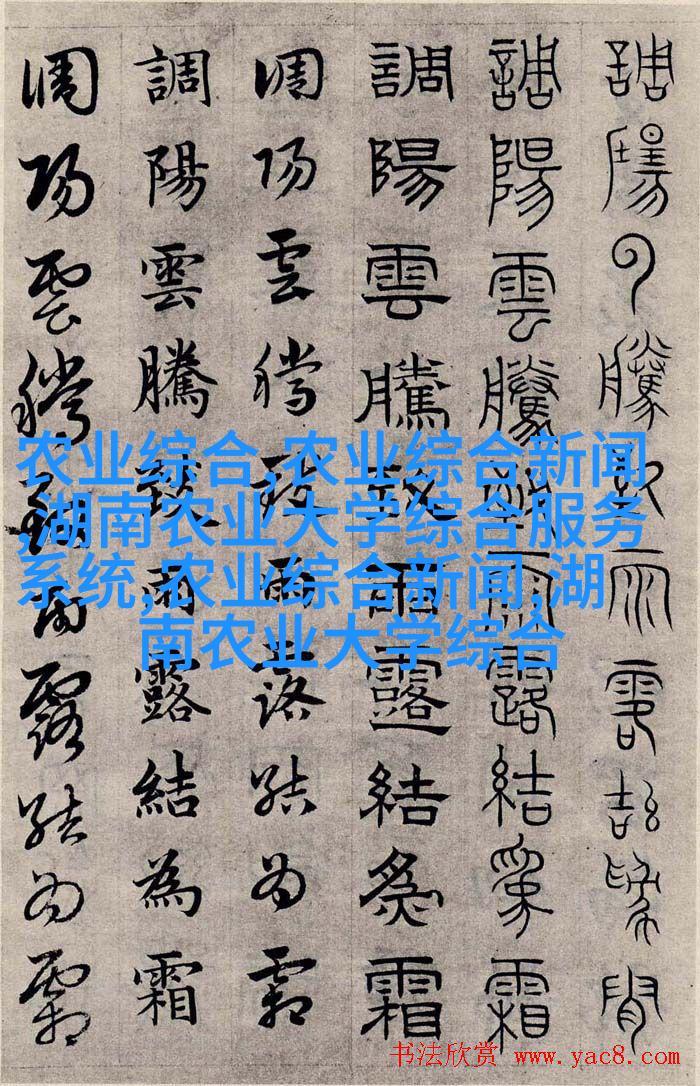 調陽雲騰致雨露結為霜
調陽雲騰致雨露結為霜
調陽雲騰致雨露結為霜
調陽雲騰致雨露結為霜
調陽雲騰致雨露結為霜
調陽雲騰致雨露結為霜
农业综合,农业综合新闻
,湖南农业大学综合服务
系统,农业综合新闻,湖
南农业大学综合
书法欣赏 www.yac8.com